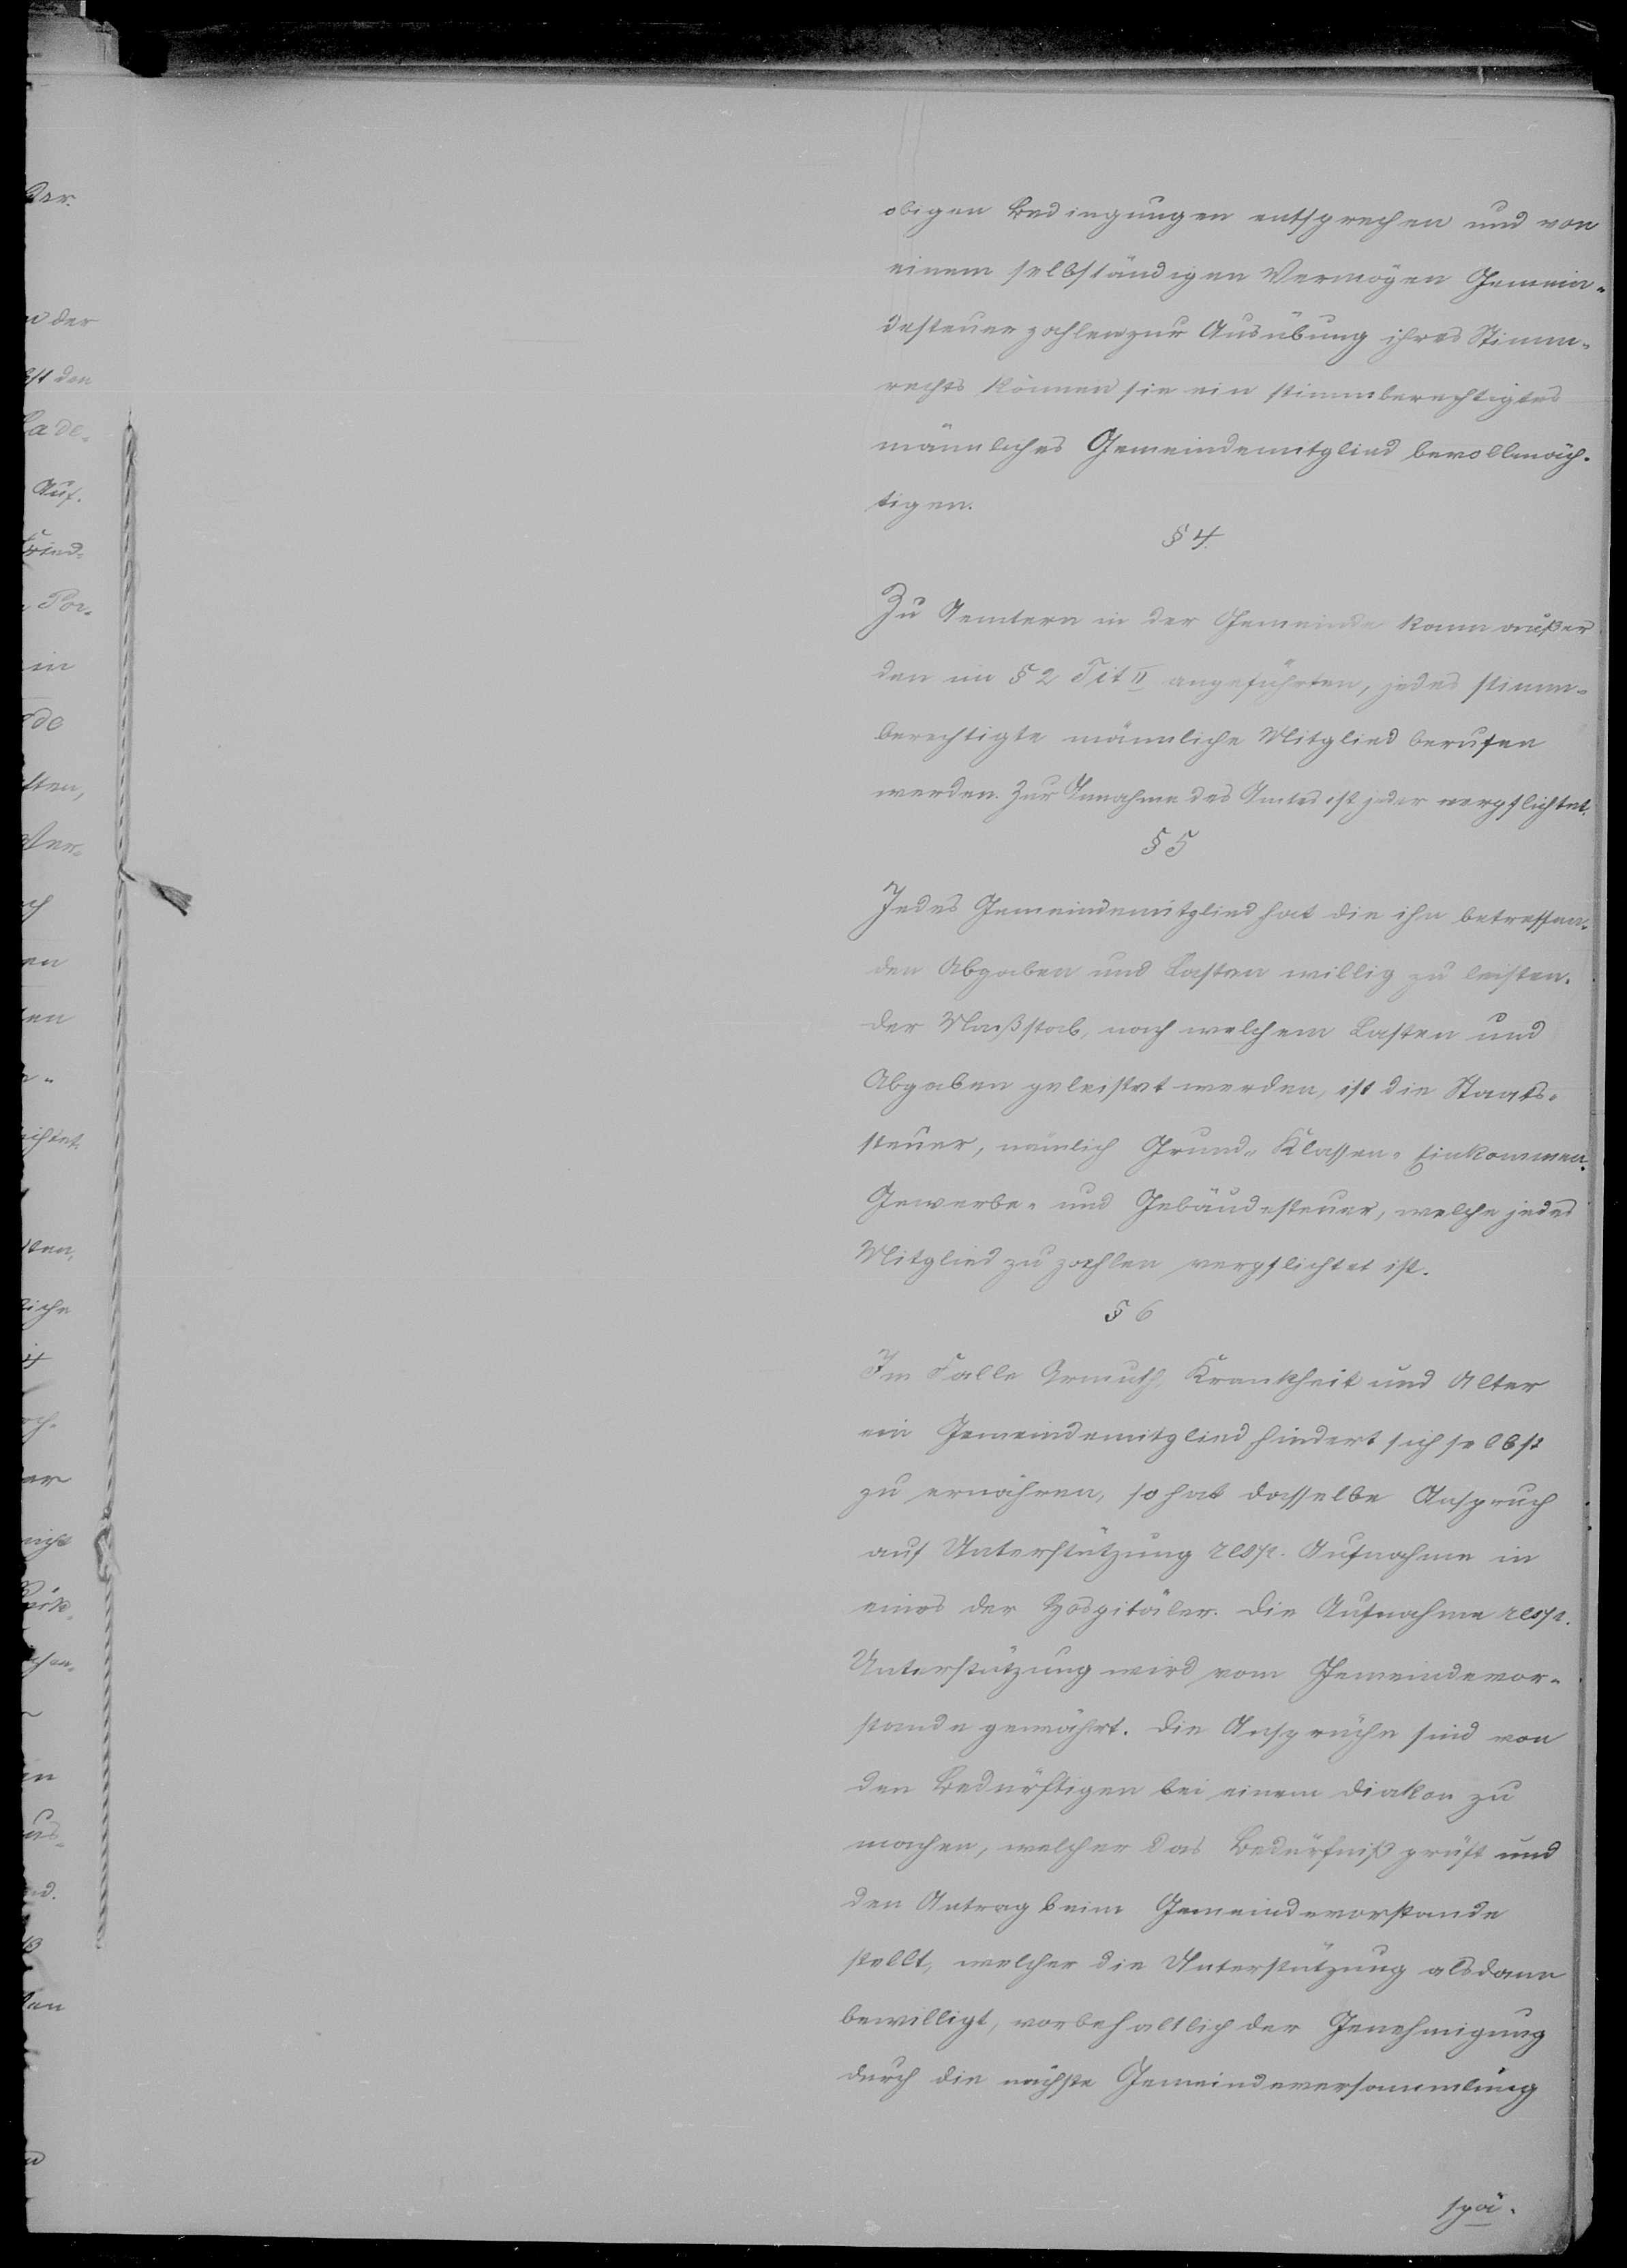 obigen Bedingungen entsprechen und von
einem selbständigen Vermögen Gemein-
desteuer zahlen zur Ausübung ihres Stimm-
rechts können sie ein stimmberechtigtes
männliches Gemeindemitglied bevollmäch-
tigen.
§ 4.
Zu Aemtern in der Gemeinde kann außer
den im § 2 Tit II angeführten, jedes stimm-
berechtigte männliche Mitglied berufen
werden. Zur Annahme des Amtes ist jeder verpflichtet.
§ 5
Jedes Gemeindemitglied hat die ihn betreffen-
den Abgaben und Lasten willig zu leisten.
Der Maßstab, nach welchem Lasten und
Abgaben geleistet werden, ist die Staats-
steuer, nämlich Grund- Klassen- Einkommen-
Gewerbe- und Gebäudesteuer, welche jedes
Mitglied zu zahlen verpflichtet ist.
§ 6
Im Falle Armuth, Krankheit und Alter
ein Gemeindemitglied hindert sich selbst
zu ernähren, so hat dasselbe Anspruch
auf Unterstützung resp. Aufnahme in
eines der Hospitäler. Die Aufnahme resp.
Unterstützung wird vom Gemeindevor-
stande gewährt. Die Ansprüche sind von
den Bedürftigen bei einem Diakon zu
machen, welcher das Bedürfniß prüft und
den Antrag beim Gemeindevorstande
stellt, welcher die Unterstützung alsdann
bewilligt, vorbehaltlich der Genehmigung
durch die nächste Gemeindeversammlung
spä-